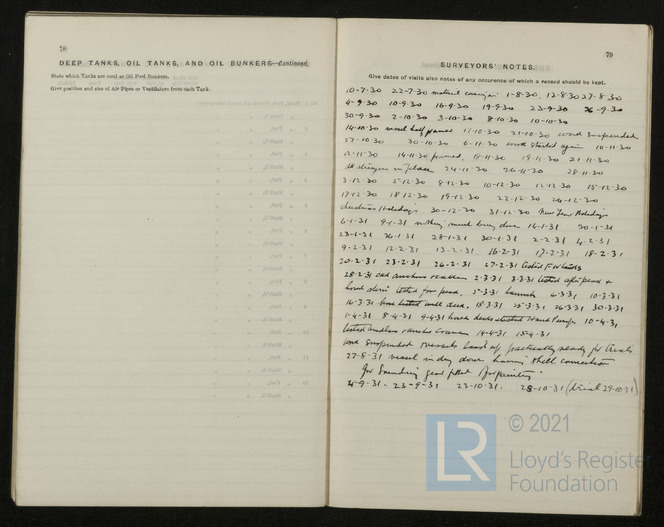 78
DEEP TANKS, OIL TANKS, AND OIL BUNKERS—Continued.
State which Tanks are used as Oil Fuel Bunkers.
Give position and size of Air Pipes or Ventilators from each Tank.
79
SURVEYORS' NOTES.
Give dates of visits also notes of any occurence of which a record should be kept.
10-7-30 22-7-30 material 1-8-30. 12-8-30 27-8-30
4-9-30 10-9-30 16-9-30 19-9-30 23-9-30 26-9-30
30-9-30 2-10-30 3-10-30 8-10-30 10-10-30
14-10-30 vessel half framed 17-10-30 21-10-30 work suspended
27-10-30 30-10-30 6-11-30 work started again 10-11-30
12-11-30 14-11-30 18-11-30 19-11-30 21-11-30
in place 24-11-30 26-11-30 28-11-30
3-12-30 5-12-30 8-12-30 10-12-30 12-12-30 15-12-30
17-12-30 18-12-30 19-12-30 22-12-30 24-12-30
Christmas Holidays 30-12-30 31-12-30 New Year Holidays
6-1-31 9-1-31 nothing much being done 14-1-31 20-1-31
23-1-31 26-1-31 28-1-31 30-1-31 2-2-31 4-2-31
9-2-31 12-2-31 13-2-31 16-2-31 17-2-31 18-2-31
20-2-31 23-2-31 26-2-31 27-2-31 tested F W tanks
28-2-31 2-3-31 3-3-31 tested after peak &
tested for peak. 5-3-31 launch 6-3-31 10-3-31
16-3-31 tested well deck. 18-3-31 25-3-31 26-3-31 30-3-31
1-4-31 8-4-31 9-4-31 tested Hand Pumps 10-4-31
tested windlass 14-4-31 15-4-31
work suspended vessels laid up practically ready for trials
27-8-31 vessel in dry dock having shell connection
for Sounding gear fitted & for painting
4-9-31 - 23-9-31 23-10-31. 28-10-31 (trial 29-10-31)
© 2021
LR
Lloyd's Register
Foundation